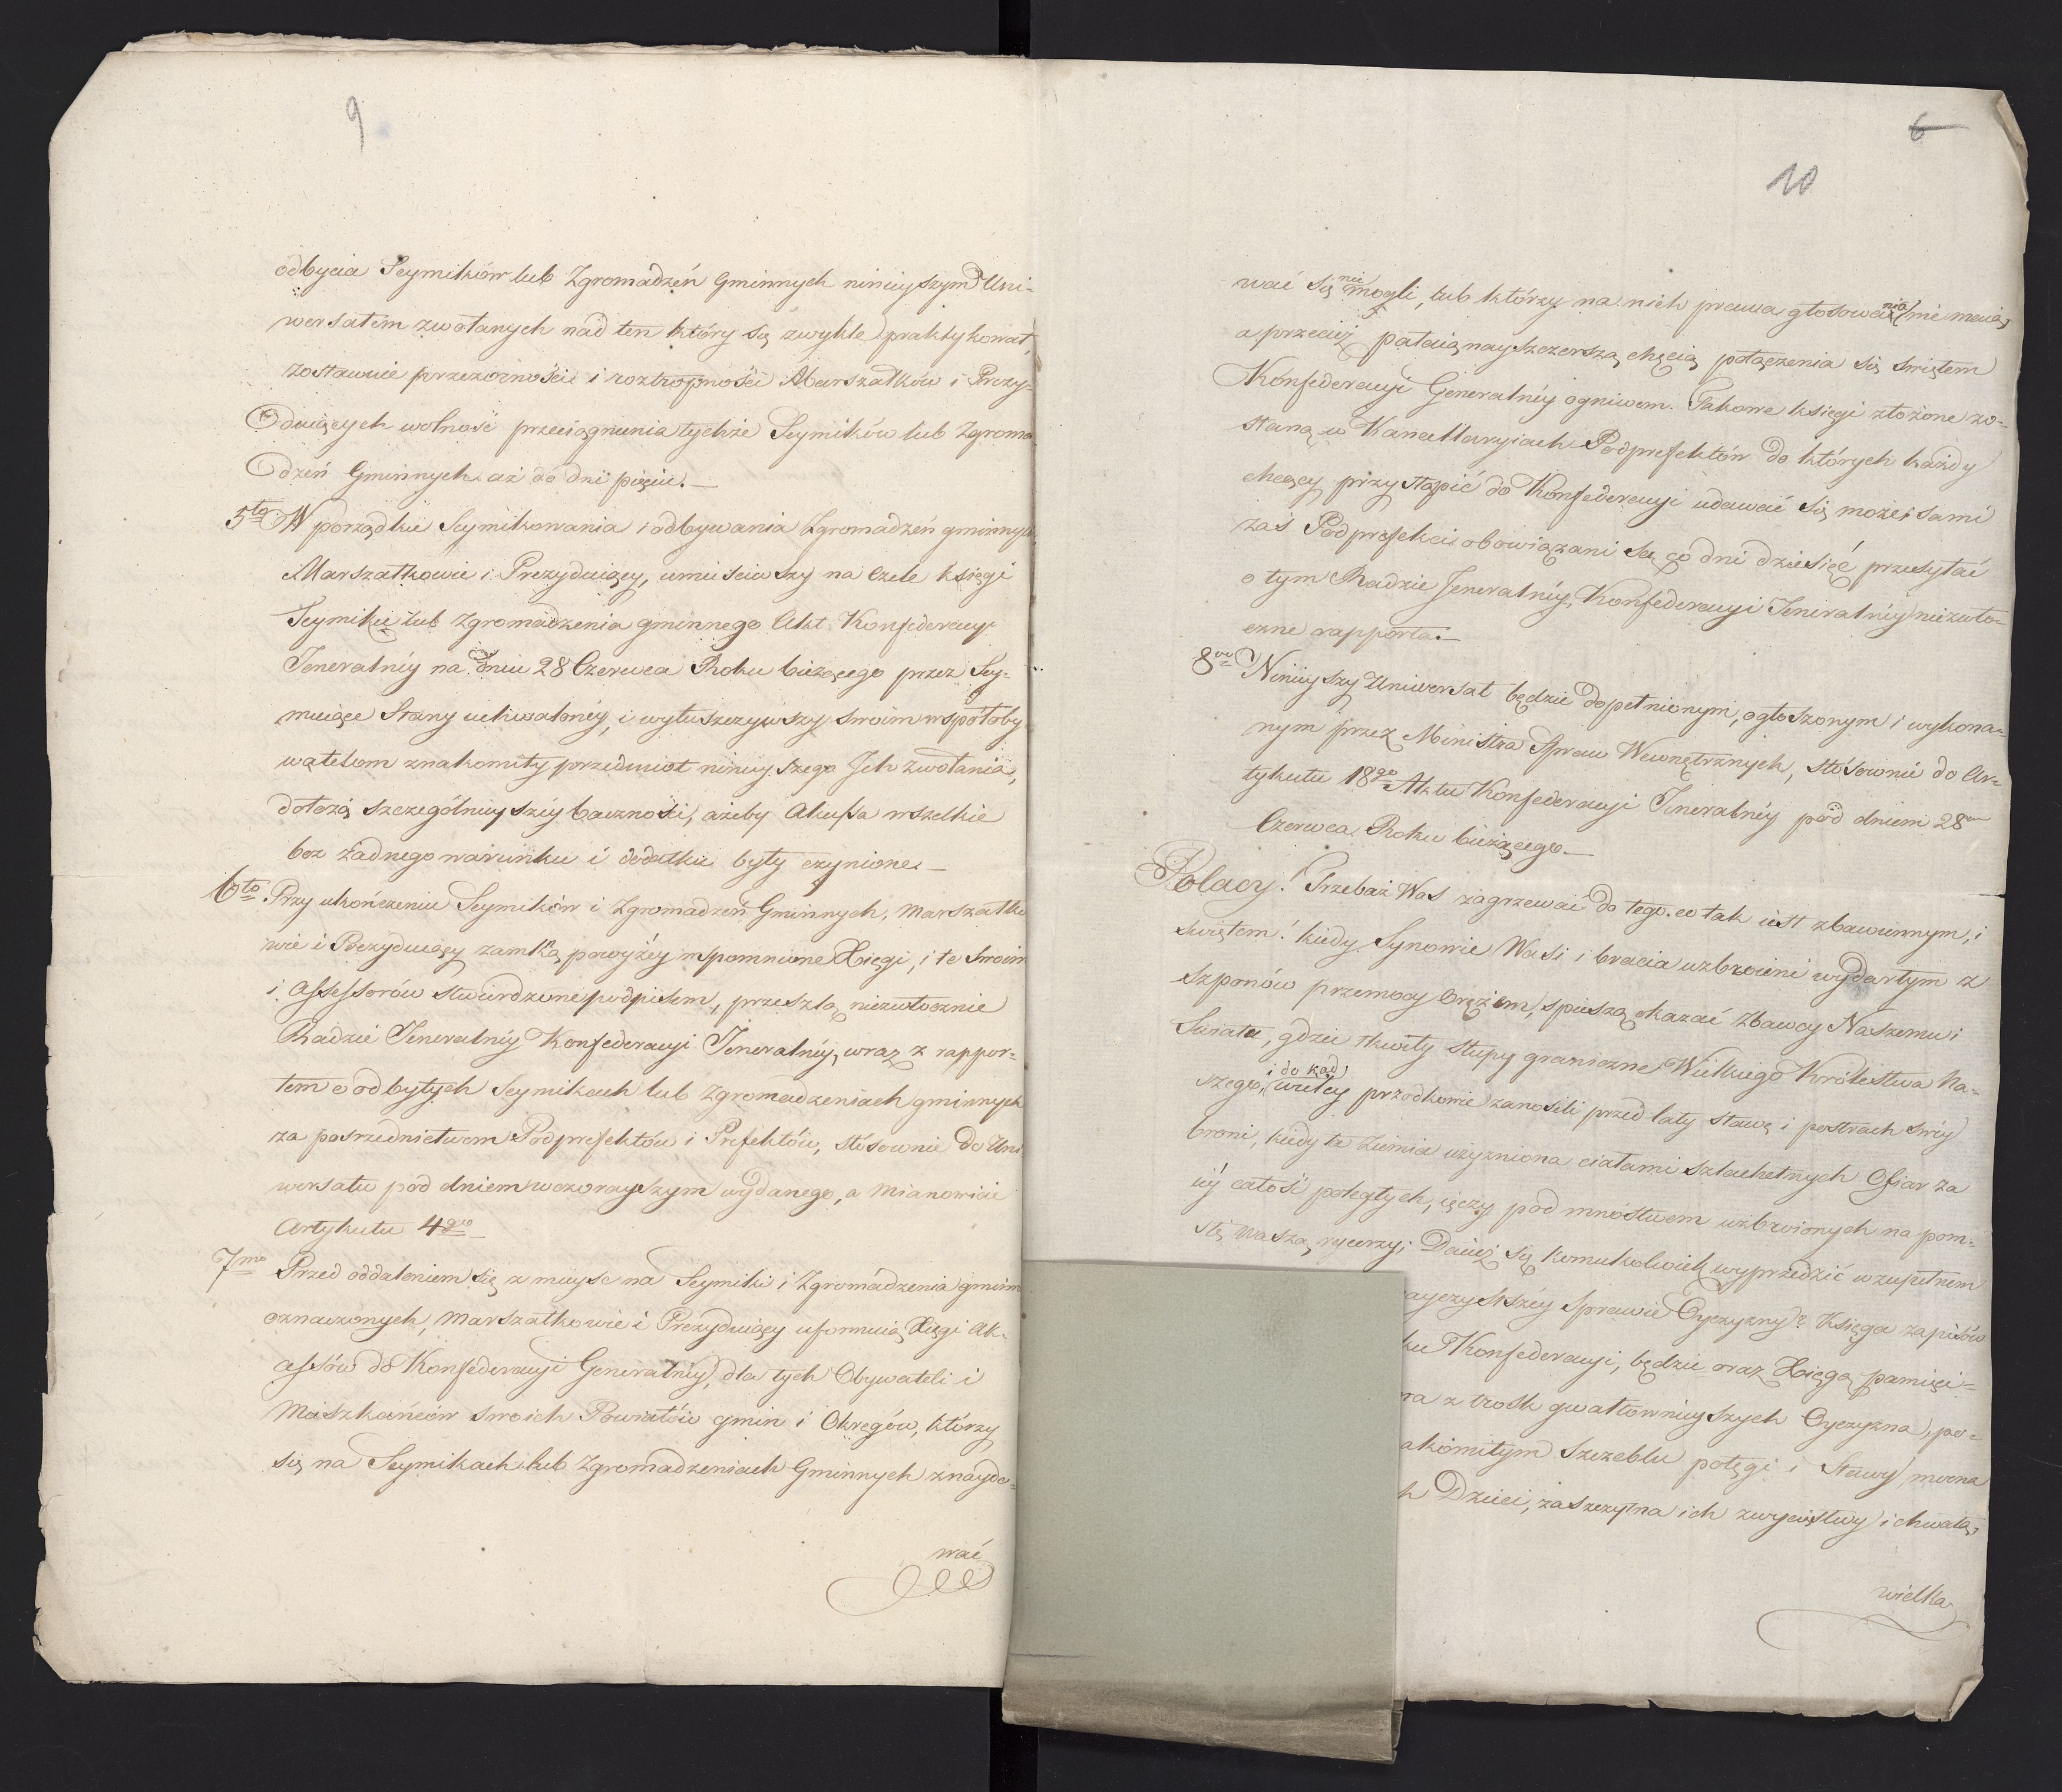 9
odbycia Seymików lub Zgromadzeń Gminnych ninieyszym Uni-
wersałem zwołanych nad ten który się zwykle praktykował,
zostawuie przezorności i roztropności Marszałków i Prezy-
duiących wolność przeciągnienia tychże Seymików lub Zgroma-
dzeń Gminnych aż do dni pięciu.—
5to W porządku Seymikowania i odbywania Zgromadzeń gminnych
Marszałkowie i Prezyduiący, umieściwszy na Czele księgi
Seymiku lub Zgromadzenia gminnego Akt Konfederacyi
Jeneralnéy na dniu 28 Czerwca Roku bieżącego przez Sey-
muiące Stany uchwalonéy, i wytłuszczywszy swoim współoby-
watelom znakomity przedmiot ninieyszego Ich zwołania,
dołożą szczególnieyszéy baczności, ażeby Akcessa wszelkie
bez żadnego warunku i dodatku były czynione.—
6to Przy ukończeniu Seymików i Zgromadzeń Gminnych, Marszałko
wie i Prezyduiący zamkną powyżéy wspomnione Xięgi, i te swoim
i Assessorów stwierdzone podpisem, prześlą niezwłocznie
Radzie Jeneralnéy Konfederacyi Jeneralnéy, wraz z rappor-
tem o odbytych Seymikach lub Zgromadzeniach gminnych
za pośrzednictwem Podprefektów i Prefektów, stósownie do Uni
wersału pod dniem wczorayszym wydanego, a mianowicie
Artykułu 4go
7mo Przed oddaleniem się z mieysc na Seymiki i Zgromadzenia gminn
oznaczonych, Marszałkowie i Prezyduiący uformuią Xięgi Ak-
cessów do Konfederacyi Generalnéy, dla tych Obywateli i
Mieszkańców swoich Powiatów gmin i Okręgów, którzy
się na Seymikach lub Zgromadzeniach Gminnych znaydo-
wać
6
10
wać się nie mogli, lub którzy na nich prawa głosowania nie maią,
a przecież pałaią nayszczerszą chęcią połączenia się świętem
Konfederacyi Generalnéy ogniwem. Takowe księgi złożone zo-
staną w Kancellaryiach Podprefektów do których każdy
chcący przystąpić do Konfederacyi udawać się może; sami
zaś Podprefekci obowiązani są co dni dziesięć przesyłać
o tym Radzie Jeneralnéy, Konfederacyi Jeneralnéy niezwło-
czne rapporta.—
8vo Ninieyszy Uniwersał będzie dopełnionym, ogłoszonym i wykona-
nym przez Ministra Spraw Wewnętrznych, stósownie do Ar-
tykułu 18go Aktu Konfederacyi Jeneralnéy pod dniem 28
Czerwca Roku bieżącego.—
Polacy! Trzebaż Was zagrzewać do tego, co tak iest zbawiennym, i
świętem! kiedy Synowie Wasi i bracia uzbroieni wydartym z
szponów przemocy Orężem, spieszą okazać Zbawcy Naszemu i
Świata, gdzie tkwiły słupy graniczne Wielkiego Królestwa Na-
szego, i do kąd wielcy przodkowie zanosili przed laty sławę i postrach swéy
broni, kiedy ta Ziemia użyzniona ciałami szlachetnych Ofiar za
iéy całość poległych, ięczy pod mnóstwem uzbroionych na pom-
stę waszą rycerzy; Dacież się komukolwiek wyprzedzić w zupełnem
ayczystszéy Sprawie Oyczyzny? Księga zapisów
ku Konfederacyi, będzie oraz Xięgą pamięci-
ra z trosk gwałtownieyszych Oyczyzna, po-
akomitym Szczeblu potęgi i Sławy mocna
h Dzieci, zaszczytna ich zwycięstwy i chwałą,
wielka